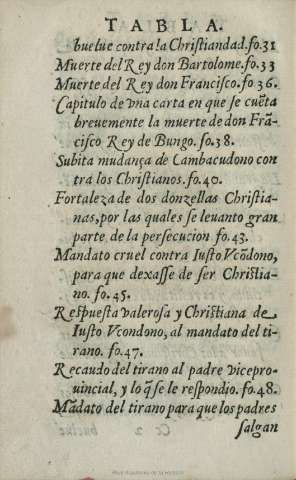 TABLA.
buelue contra la Christiandad. fo.31
Muerte del Rey don Bartolome. fo.33
Muerte del Rey don Francisco. fo 36.
Capitulo de vna carta en que se cuẽta
breuemente la muerte de don Frã-
cisco Rey de Bungo. fo.38.
Subita mudança de Cambacudono con
tra los Christianos. fo.40.
Fortaleza de dos donzellas Christia-
nas, por las quales se leuanto gran
parte de la persecucion fo.43.
Mandato cruel contra Iusto Vcõdono,
para que dexasse de ser Christia-
no. fo.45.
Respuesta valerosa y Christiana de
Iusto Vcondono, al mandato del ti-
rano. fo.47.
Recaudo del tirano al padre vicepro-
uincial, y lo q̃ se le respondio. fo.48.
Mãdato del tirano para que los padres
salgan